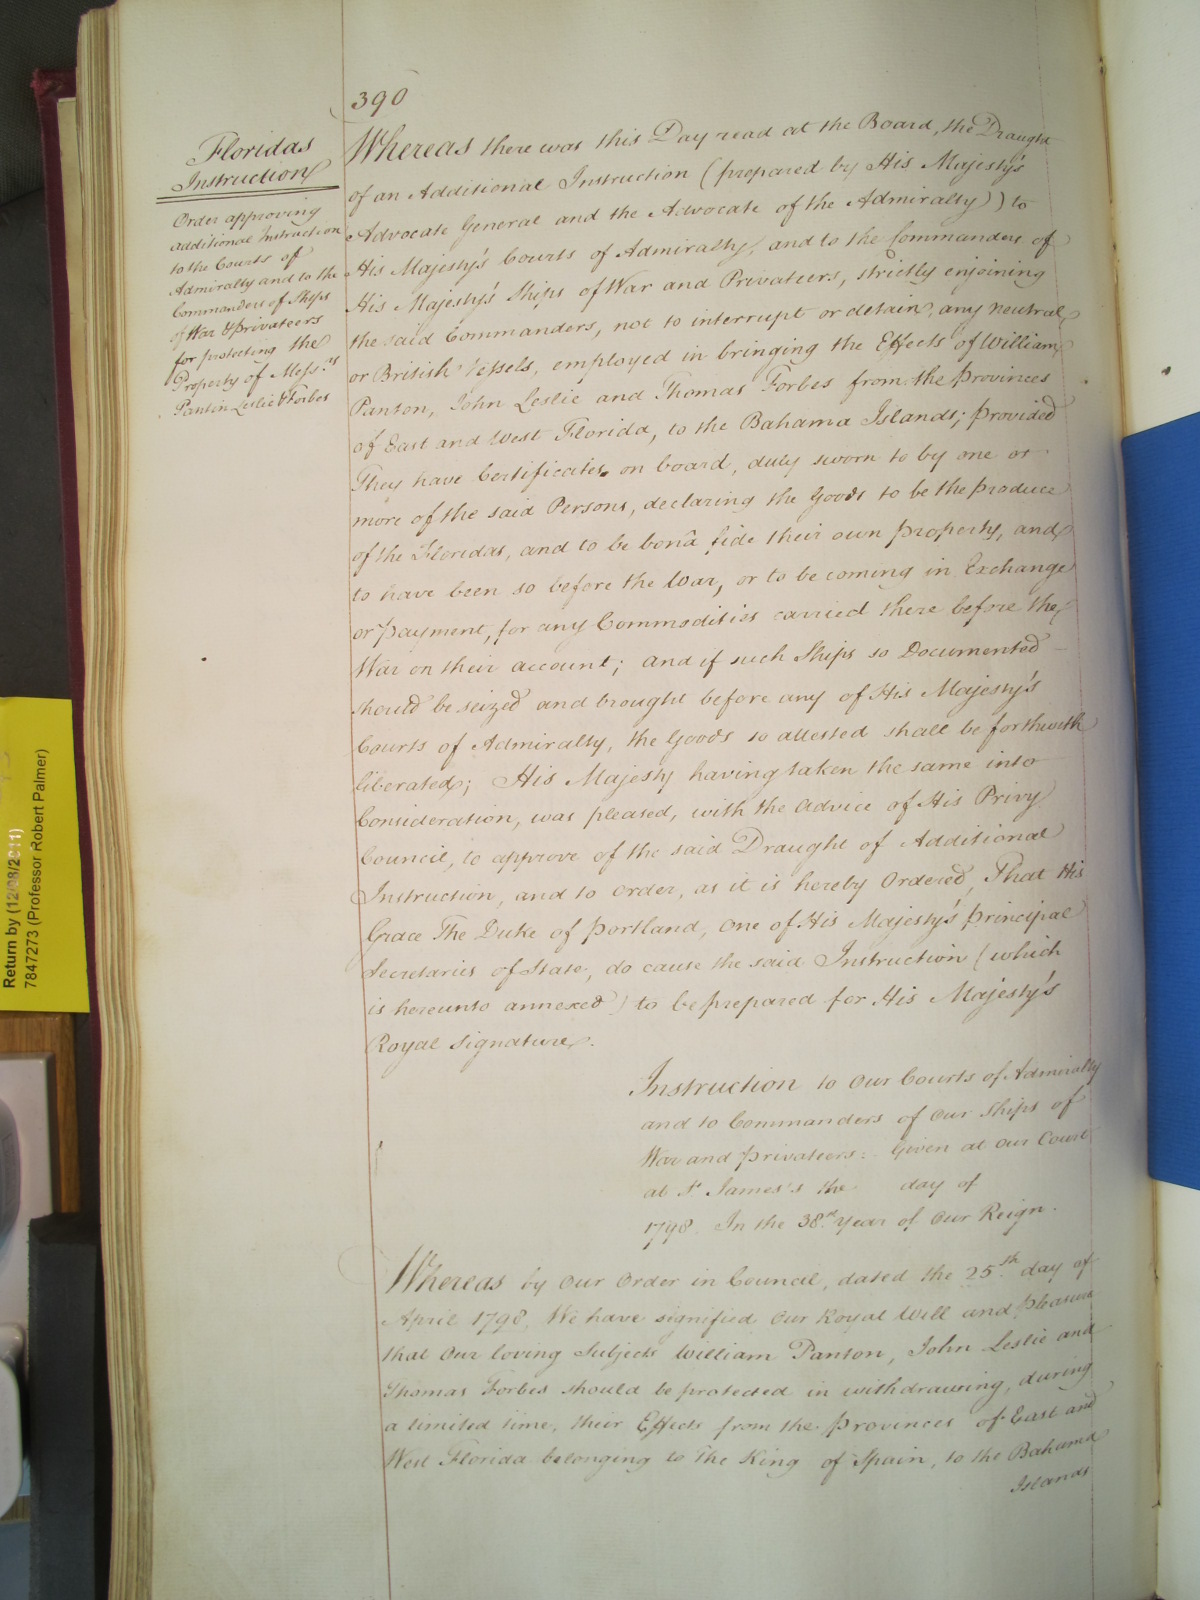 390
Floridas
Instruction
Order approving
additional Instruction
to the Courts of
Admiralty and to the
Commanders of Ships
of War & Privateers
for protecting the
Property of Mess.rs
Panton Leslie & Forbes
Whereas there was this Day read at the Board, the Draught
of an Additional Instruction (prepared by His Majesty's
Advocate General and the Advocate of the Admiralty) to
His Majesty's Courts of Admiralty, and to the Commanders of
His Majesty's Ships of War and Privateers, strictly enjoining
the said Commanders, not to interrupt or detain, any neutral
or British Vessels, employed in bringing the Effects of William
Panton, John Leslie and Thomas Forbes from the Provinces
of East and West Florida, to the Bahama Islands; provided
They have Certificates on board, duly sworn to by one or
more of the said Persons, declaring the Goods to be the produce
of the Floridas, and to be bonâ fide their own property, and
to have been so before the War, or to be coming in Exchange
or payment, for any Commodities carried there before the
War on their account; and if such Ships so Documented
should be seized and brought before any of His Majesty's
Courts of Admiralty, the Goods so attested shall be forthwith
liberated; His Majesty having taken the same into
Consideration, was pleased, with the Advice of His Privy
Council, to approve of the said Draught of Additional
Instruction, and to order, as it is hereby Ordered, That His
Grace The Duke of Portland, one of His Majesty's principal
Secretaries of State, do cause the said Instruction (which
is hereunto annexed) to be prepared for His Majesty's
Royal Signature.
Instruction to Our Courts of Admiralty
and to Commanders of Our Ships of
War and privateers: Given at Our Court
at St James's the day of
1798. In the 38.th Year of Our Reign.
Whereas by Our Order in Council, dated the 25.th day of
April 1798, We have signified Our Royal Will and pleasure
that Our loving Subjects William Panton, John Leslie and
Thomas Forbes should be protected in withdrawing, during
a limited time, their Effects from the Provinces of East and
West Florida belonging to The King of Spain, to the Bahama
Islands
Return by (12/08/2011)
7847273 (Professor Robert Palmer)